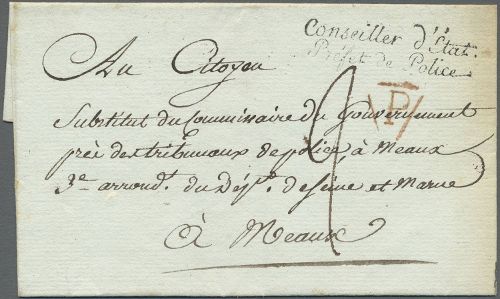 Conseiller d'État.
Préfet de Police
Au Citoyen
P
Substitut du Commissaire du Gouvernement
près des tribunaux de police, à Meaux
3e arrondt. du Dépt. de Seine et Marne
à Meaux